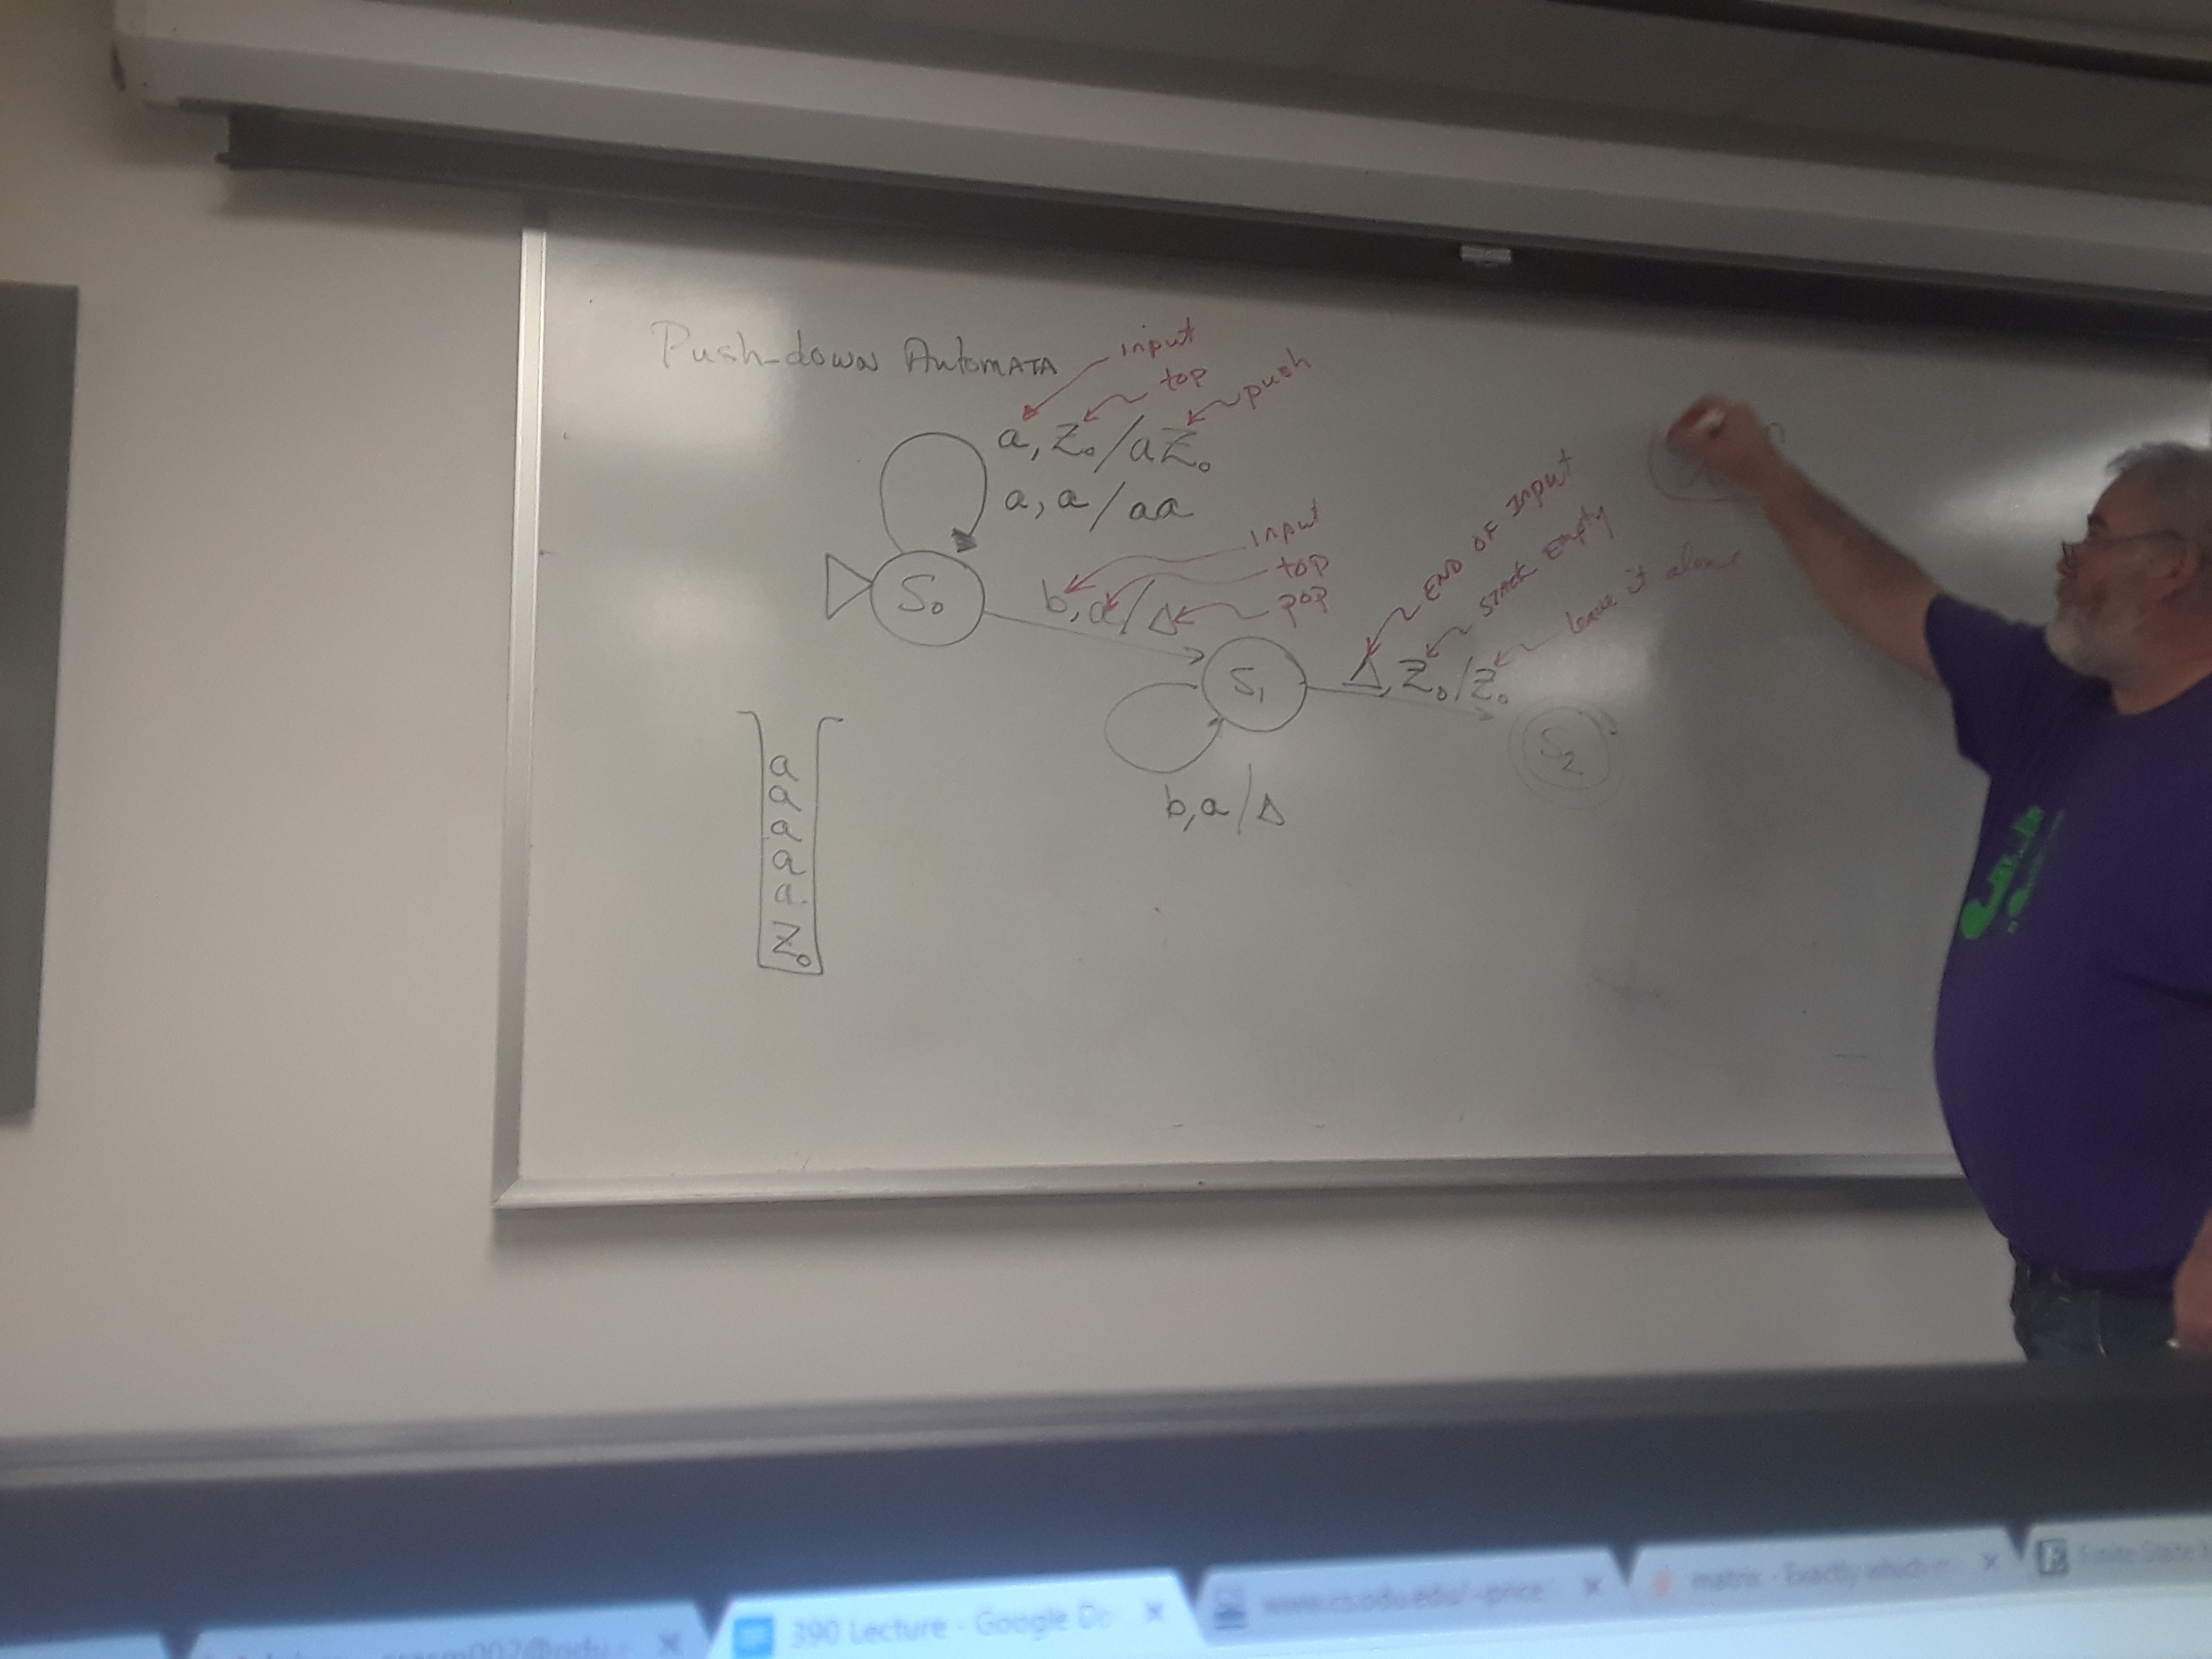 Push-down Automata
input
top
push
a, Z₀/aZ₀
a, a/aa
S₀
input
top
pop
b, a/Δ
END OF Input
Stack Empty
leave it alone
Δ, Z₀/Z₀
S₁
S₂
b, a/Δ
a
a
a
a
a
Z₀
390 Lecture - Google Do
www.cs.odu.edu/~price
matrix - Exactly which
Finite State